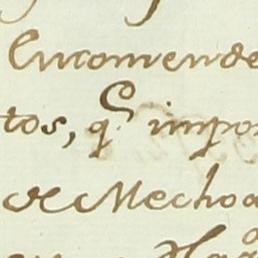 Encomende
tos, q.e impor
de Mechoa